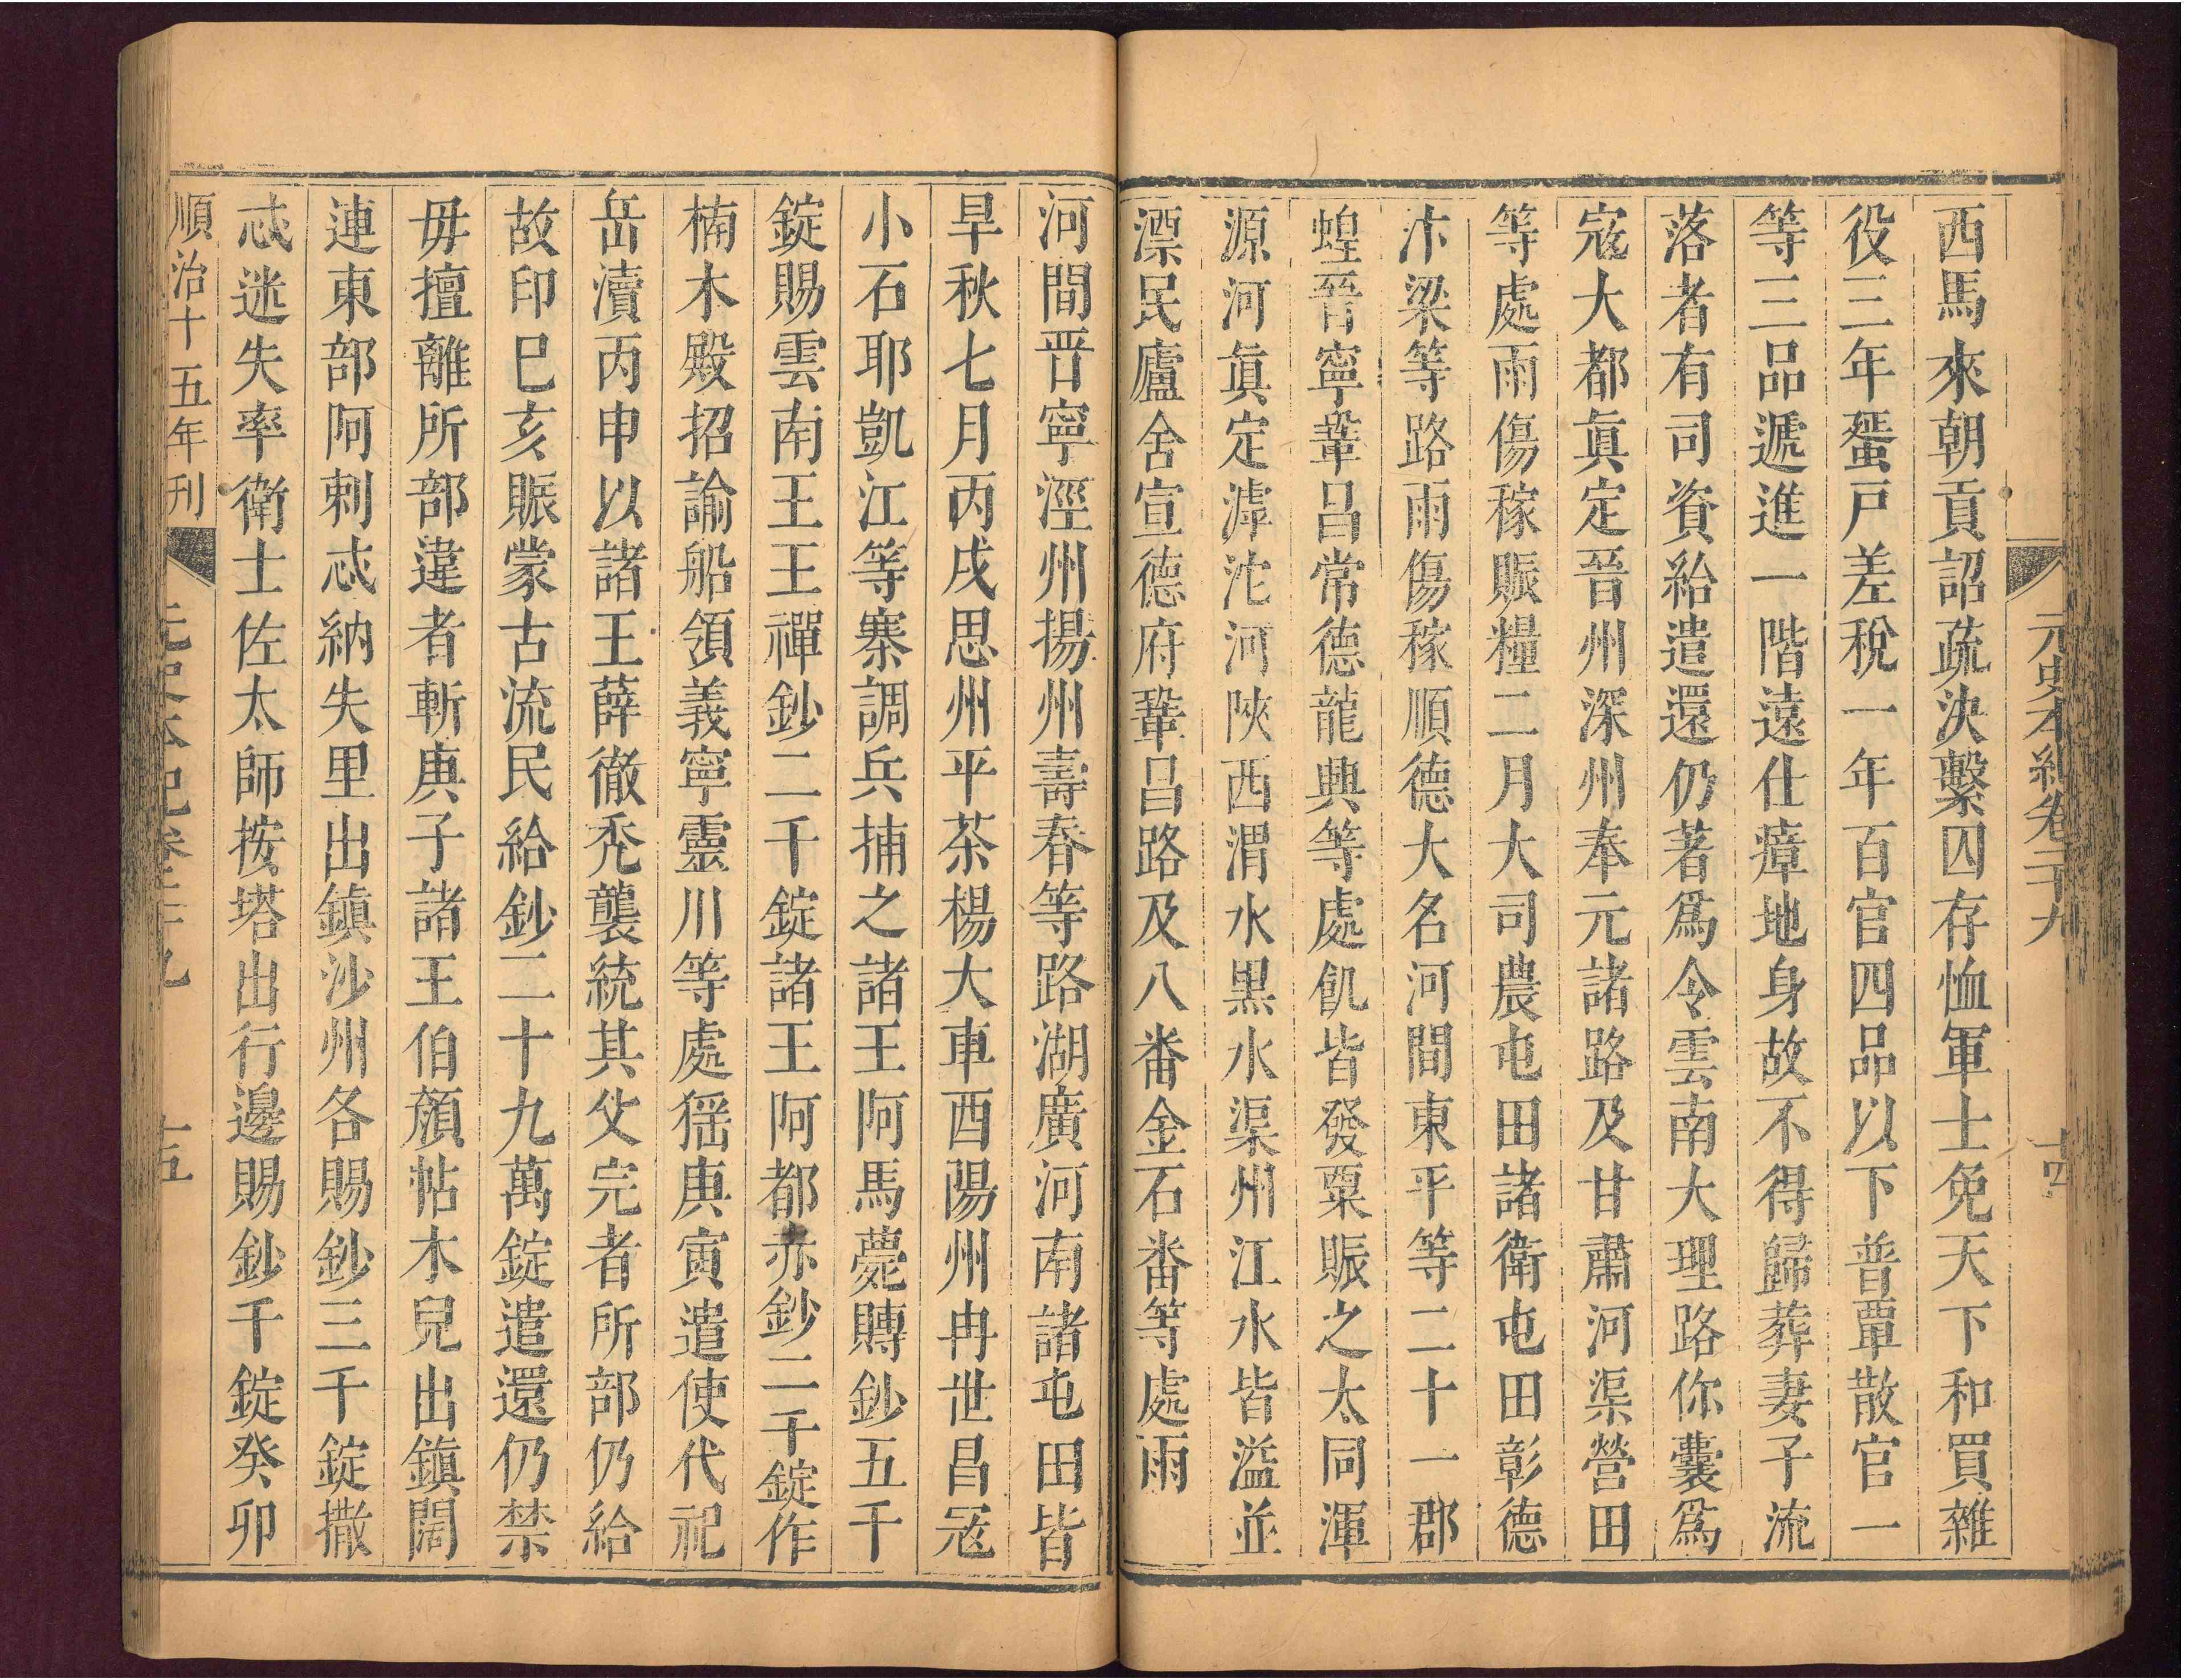 元史本紀卷二十九
十四
西馬來朝貢詔疏決繫囚存恤軍士免天下和買雜
役三年蜑戶差稅一年百官四品以下普覃散官一
等三品遞進一階遠仕瘴地身故不得歸葬妻子流
落者有司資給遣還仍著爲令雲南大理路你囊爲
寇大都眞定晉州深州奉元諸路及甘肅河渠營田
等處雨傷稼賑糧二月大司農屯田諸衛屯田彰德
汴梁等路雨傷稼順德大名河間東平等二十一郡
蝗晉寧鞏昌常德龍興等處飢皆發粟賑之太同渾
源河眞定滹沱河陝西渭水黑水渠州江水皆溢並
漂民廬舍宣德府鞏昌路及八番金石番等處雨
河間晋寧涇州揚州壽春等路湖廣河南諸屯田皆
旱秋七月丙戌思州平茶楊大車酉陽州冉世昌寇
小石耶凱江等寨調兵捕之諸王阿馬薨賻鈔五千
錠賜雲南王王禪鈔二千錠諸王阿都赤鈔二千錠作
楠木殿招諭船領義寧靈川等處猺庚寅遣使代祀
岳瀆丙申以諸王薛徹禿襲統其父完者所部仍給
故印巳亥賑蒙古流民給鈔二十九萬錠遣還仍禁
毋擅離所部違者斬庚子諸王伯顏帖木兒出鎭闊
連東部阿剌忒納失里出鎭沙州各賜鈔三千錠撒
忒迷失率衛士佐太師按塔出行邊賜鈔千錠癸卯
順治十五年刊
元史本紀卷二十九
十五